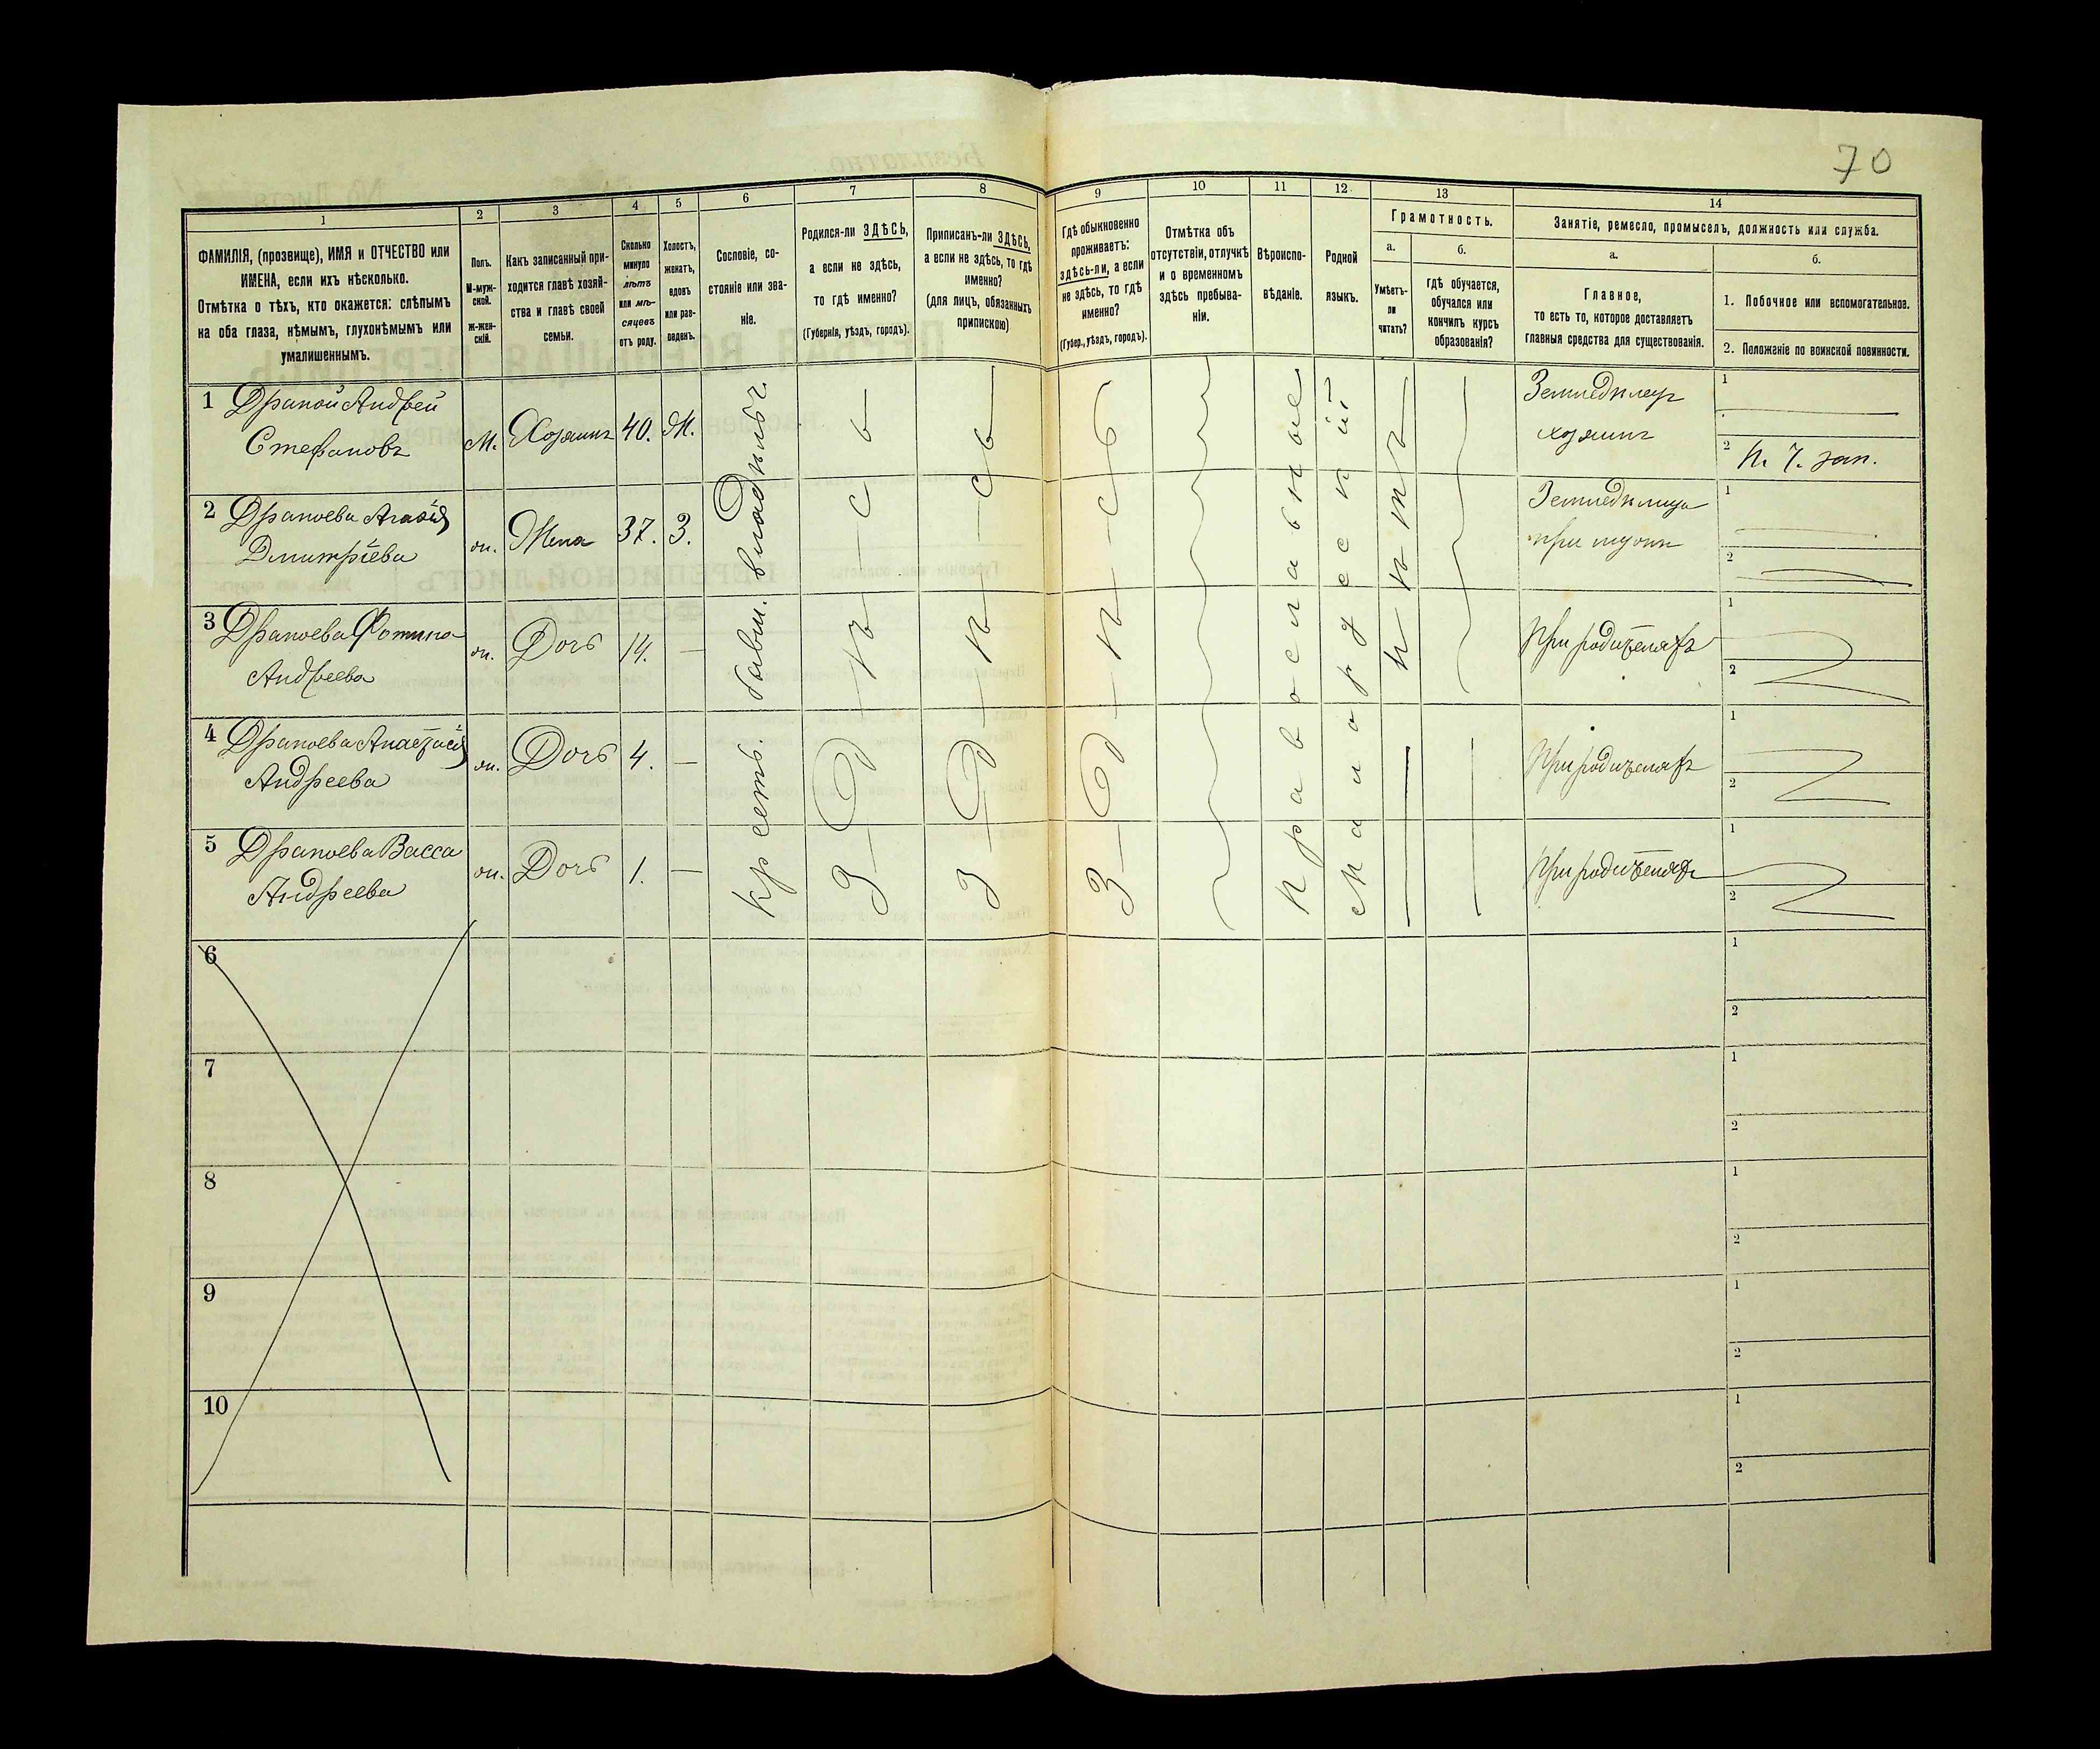 70
1
2
3
4
5
6
7
8
9
10
11
12
13
14
ФАМИЛІЯ, (прозвище), ИМЯ и ОТЧЕСТВО или
ИМЕНА, если ихъ нѣсколько.
Отмѣтка о тѣхъ, кто окажется: слѣпымъ
на оба глаза, нѣмымъ, глухонѣмымъ или
умалишеннымъ.
Полъ.
М-муж-
ской.
Ж-жен-
скій.
Какъ записанный при-
ходится главѣ хозяй-
ства и главѣ своей
семьи.
Сколько
минуло
лѣтъ
или мѣ-
сяцевъ
отъ роду.
Холостъ,
женатъ,
вдовъ
или раз-
веденъ.
Сословіе, со-
стояніе или зва-
ніе.
Родился-ли ЗДѢСЬ,
а если не здѣсь,
то гдѣ именно?
(Губернія, уѣздъ, городъ).
Приписанъ-ли ЗДѢСЬ,
а если не здѣсь, то гдѣ
именно?
(для лицъ, обязанныхъ
припискою)
Гдѣ обыкновенно
проживаетъ:
здѣсь-ли, а если
не здѣсь, то гдѣ
именно?
(Губер., уѣздъ, городъ).
Отмѣтка объ
отсутствіи, отлучкѣ
и о временномъ
здѣсь пребыва-
ніи.
Вѣроиспо-
вѣданіе.
Родной
языкъ.
Грамотность.
а.
Умѣетъ-
ли
читать?
б.
гдѣ обучается,
обучался или
кончилъ курсъ
образованія?
Занятіе, ремесло, промыселъ, должность или служба.
а.
Главное,
то есть то, которое доставляетъ
главныя средства для существованія.
б.
1. Побочное или вспомогательное.
2. Положеніе по воинской повинности.
1 Драной Андрей
Стефановъ
М. Хозяинъ 40. Ж.
Земледѣлецъ
хозяинъ
1
2
2
Дмитріева
ж. Жена 37. З.
Земледѣлица
при мужѣ
1
2
3
Андреева
ж. Дочь 14. —
При родителяхъ
1
2
4
Андреева
ж. Дочь 4. —
При родителяхъ
1
2
5
Васса
Андреева
ж. Дочь 1. —
При родителяхъ
1
2
Крест. бывш. владѣльч.
З-д-ѣ-с-ь
З-д-ѣ-с-ь
З-д-ѣ-с-ь
Православное
Малорусскій
нѣтъ
6
1
2
7
1
2
8
1
2
9
1
2
10
1
2